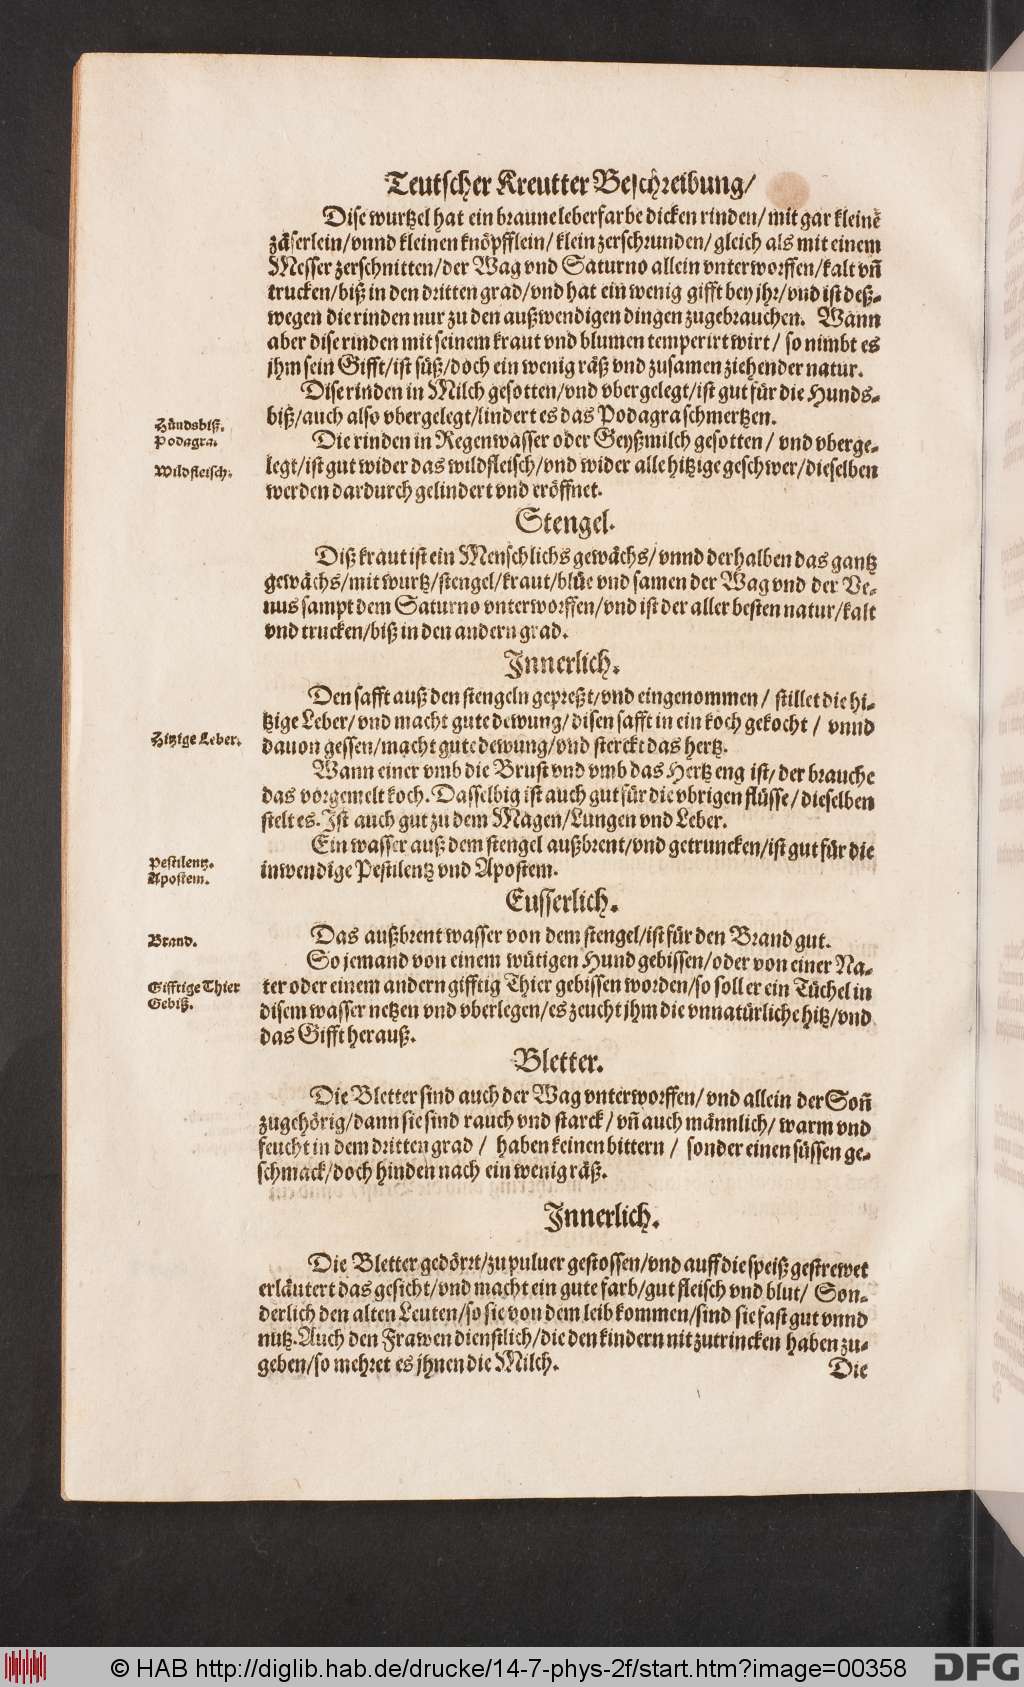 Teutscher Kreutter Beschreibung/
Dise wurtzel hat ein braune leberfarbe dicken rinden/ mit gar kleinē
zäserlein/vnnd kleinen knöpfflein/ klein zerschrunden/ gleich als mit einem
Messer zerschnitten/der Wag vnd Saturno allein vnterworffen/kalt vñ
trucken/biß in den dritten grad/vnd hat ein wenig gifft bey jhr/vnd ist deß-
wegen die rinden nur zu den außwendigen dingen zugebrauchen. Wann
aber dise rinden mit seinem kraut vnd blumen temperirt wirt/ so nimbt es
jhm sein Gifft/ist süß/doch ein wenig räß vnd zusamen ziehender natur.
Dise rinden in Milch gesotten/vnd vbergelegt/ist gut für die Hunds-
biß/auch also vbergelegt/lindert es das Podagra schmertzen.
Hundsbiß.
Podagra.
Die rinden in Regenwasser oder Geyßmilch gesotten/ vnd vberge-
legt/ist gut wider das wildfleisch/vnd wider alle hitzige geschwer/dieselben
werden dardurch gelindert vnd eröffnet.
Wildfleisch.
Stengel.
Diß kraut ist ein Menschlichs gewächs/ vnnd derhalben das gantz
gewächs/mit wurtz/stengel/kraut/blüt vnd samen der Wag vnd der Ve-
nus sampt dem Saturno vnterworffen/vnd ist der aller besten natur/kalt
vnd trucken/biß in den andern grad.
Innerlich.
Den safft auß den stengeln gepreßt/vnd eingenommen/ stillet die hi-
tzige Leber/ vnd macht gute dewung/ disen safft in ein koch gekocht/ vnnd
dauon gessen/macht gute dewung/vnd sterckt das hertz.
Hitzige Leber.
Wann einer vmb die Brust vnd vmb das Hertz eng ist/ der brauche
das vorgemelt koch. Dasselbig ist auch gut für die vbrigen flüsse/ dieselben
stelt es. Ist auch gut zu dem Magen/Lungen vnd Leber.
Ein wasser auß dem stengel außbrent/vnd getruncken/ist gut für die
inwendige Pestilentz vnd Apostem.
Pestilentz.
Apostem.
Eusserlich.
Das außbrent wasser von dem stengel/ist für den Brand gut.
Brand.
So jemand von einem wütigen Hund gebissen/oder von einer Na-
ter oder einem andern gifftig Thier gebissen worden/so soll er ein Tüchel in
disem wasser netzen vnd vberlegen/es zeucht jhm die vnnatürliche hitz/vnd
das Gifft herauß.
Gifftige Thier
Gebiß.
Bletter.
Die Bletter sind auch der Wag vnterworffen/ vnd allein der Soñ
zugehörig/dann sie sind rauch vnd starck/ vñ auch männlich/ warm vnd
feucht in dem dritten grad/ haben keinen bittern/ sonder einen süssen ge-
schmack/doch hinden nach ein wenig räß.
Innerlich.
Die Bletter gedörrt/zu puluer gestossen/vnd auff die speiß gestrewet
erläutert das gesicht/vnd macht ein gute farb/gut fleisch vnd blut/ Son-
derlich den alten Leuten/so sie von dem leib kommen/sind sie fast gut vnnd
nutz. Auch den Frawen dienstlich/die den kindern nit zutrincken haben zu-
geben/so mehret es jhnen die Milch.
Die
© HAB http://diglib.hab.de/drucke/14-7-phys-2f/start.htm?image=00358
DFG